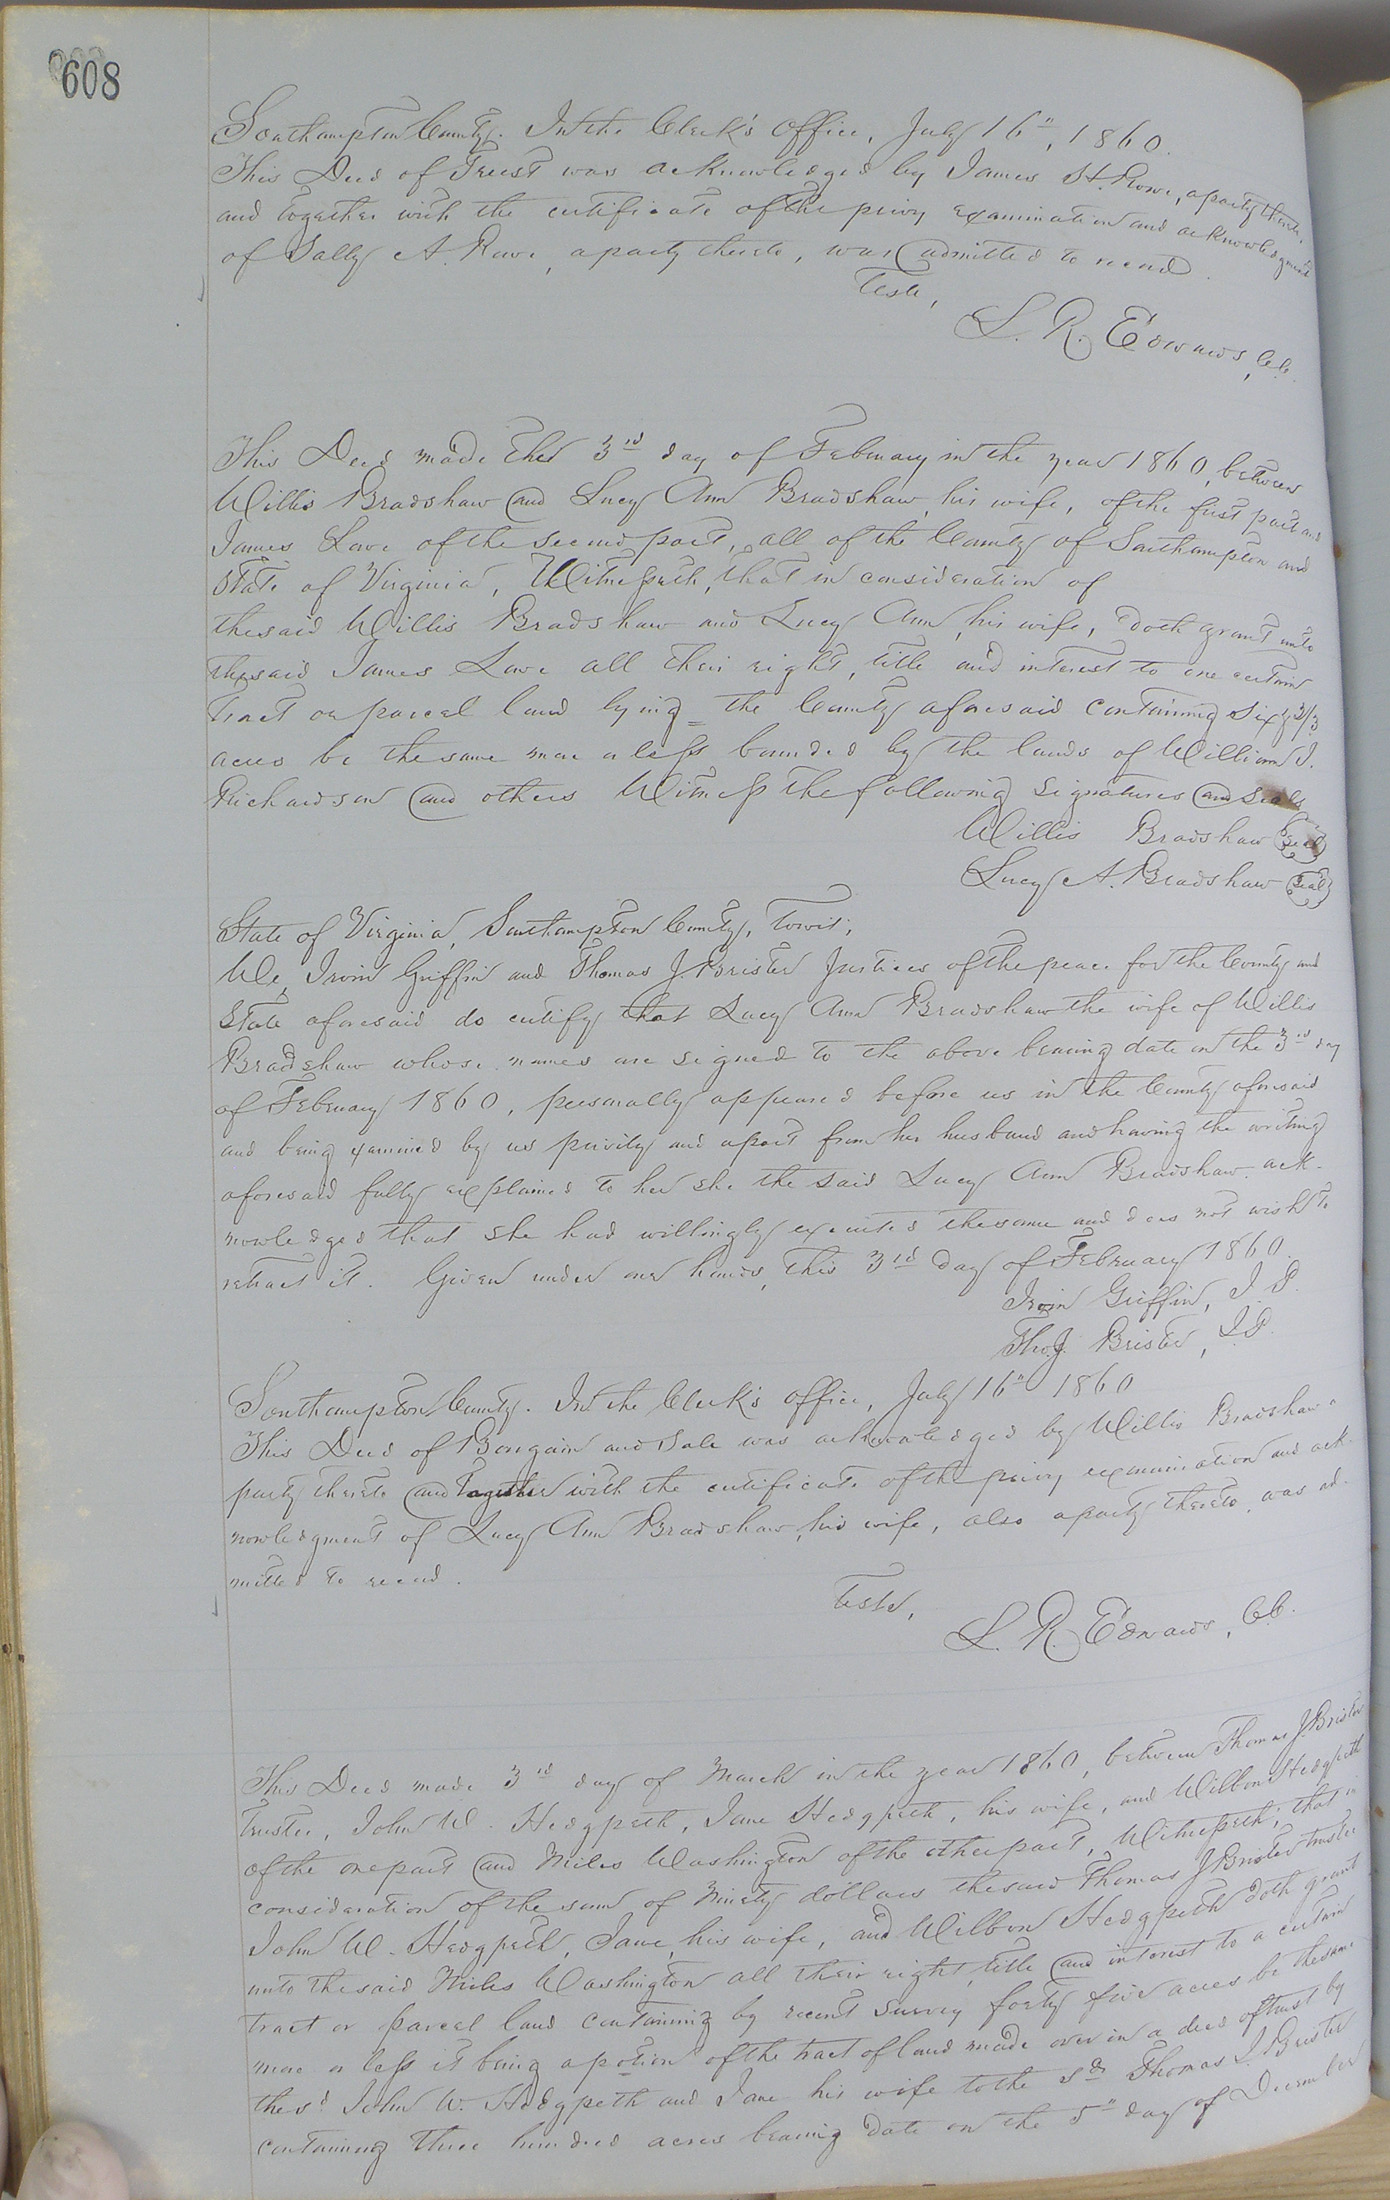 608
Southampton County. In the Clerk's Office, July 16", 1860.
This Deed of Trust was acknowledged by James H. Rowe, a party thereto,
and together with the certificate of the privy examination and acknowledgment
of Sally A. Rowe, a party thereto, was admitted to record.
Teste,
L. R. Edwards, C.C.
This Deed made the 3rd day of February in the year 1860, between
Willis Bradshaw and Lucy Ann Bradshaw, his wife, of the first part and
James Love of the second part, all of the County of Southampton and
State of Virginia, Witnesseth, that in consideration of
the said Willis Bradshaw and Lucy Ann, his wife, doth grant unto
the said James Love all their right, title and interest to one certain
tract or parcel land lying = the County aforesaid containing sixty 2/3
acres be the same more or less bounded by the lands of William J.
Richardson and others Witness the following signatures and seals
Willis Bradshaw Seal
Lucy A. Bradshaw Seal
State of Virginia, Southampton County, towit;
We, Irvin Griffin and Thomas J. Brister Justices of the peace for the County and
State aforesaid do certify that Lucy Ann Bradshaw the wife of Willis
Bradshaw whose names are signed to the above bearing date on the 3rd day
of February 1860, personally appeared before us in the County aforesaid
and being examined by us privily and apart from her husband and having the writing
aforesaid fully explained to her she the said Lucy Ann Bradshaw ack-
nowledged that she had willingly executed the same and does not wish to
retract it. Given under our hands, this 3rd day of February 1860.
Irvin Griffin, J. P.
Tho. J. Brister, J.P.
Southampton County. In the Clerk's office, July 16" 1860
This Deed of Bargain and Sale was acknowledged by Willis Bradshaw a
party thereto and together with the certificate of the privy examination and ack-
nowledgment of Lucy Ann Bradshaw, his wife, also a party thereto, was ad-
mitted to record.
Teste,
L. R. Edwards, C.C.
This Deed made 3rd day of March in the year 1860, between Thomas J. Brister
Trustee, John W. Hedgpeth, Jane Hedgpeth, his wife, and Wilbon Hedgpeth
of the one part and Miles Washington of the other part, Witnesseth; that in
consideration of the sum of Ninety dollars the said Thomas J. Brister trustee
John W. Hedgpeth, Jane, his wife, and Wilbon Hedgpeth doth grant
unto the said Miles Washington all their right, title and interest to a certain
tract or parcel land containing by recent survey forty five acres be the same
more or less it being a potion of the tract of land made over in a deed of trust by
the sd John W. Hedgpeth and Jane his wife to the sd Thomas J. Brister
containing three hundred acres bearing date on the 5" day of December